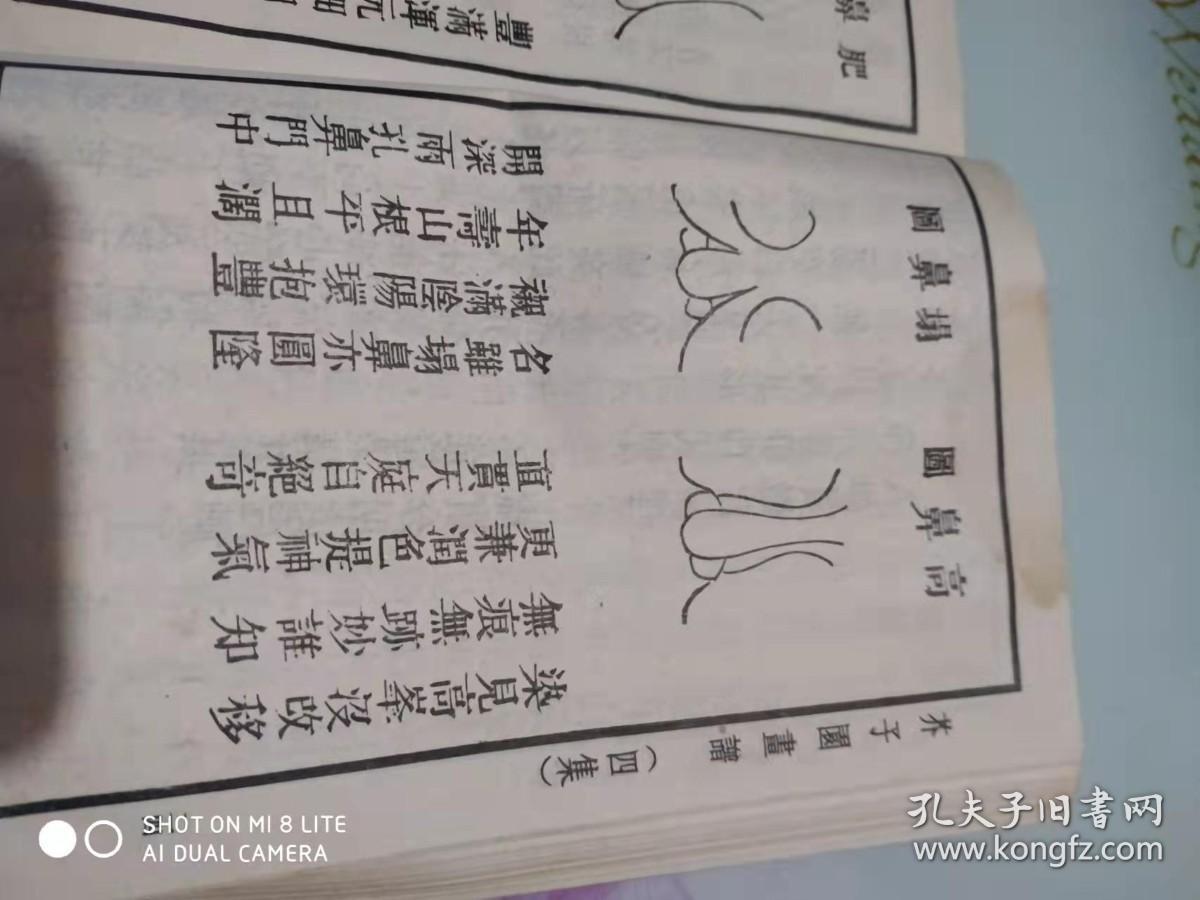 芥子園畫譜(四集)
高鼻圖
染見高峯沒改移
無痕無跡妙誰知
更兼潤色提神氣
直貫天庭自絕竒
塌鼻圖
名雖塌鼻亦圓隆
襯滿陰陽環抱豐
年壽山根平且濶
開深兩孔鼻門中
肥鼻
豐滿渾元
SHOT ON MI 8 LITE
AI DUAL CAMERA
孔夫子旧书网
www.kongfz.com